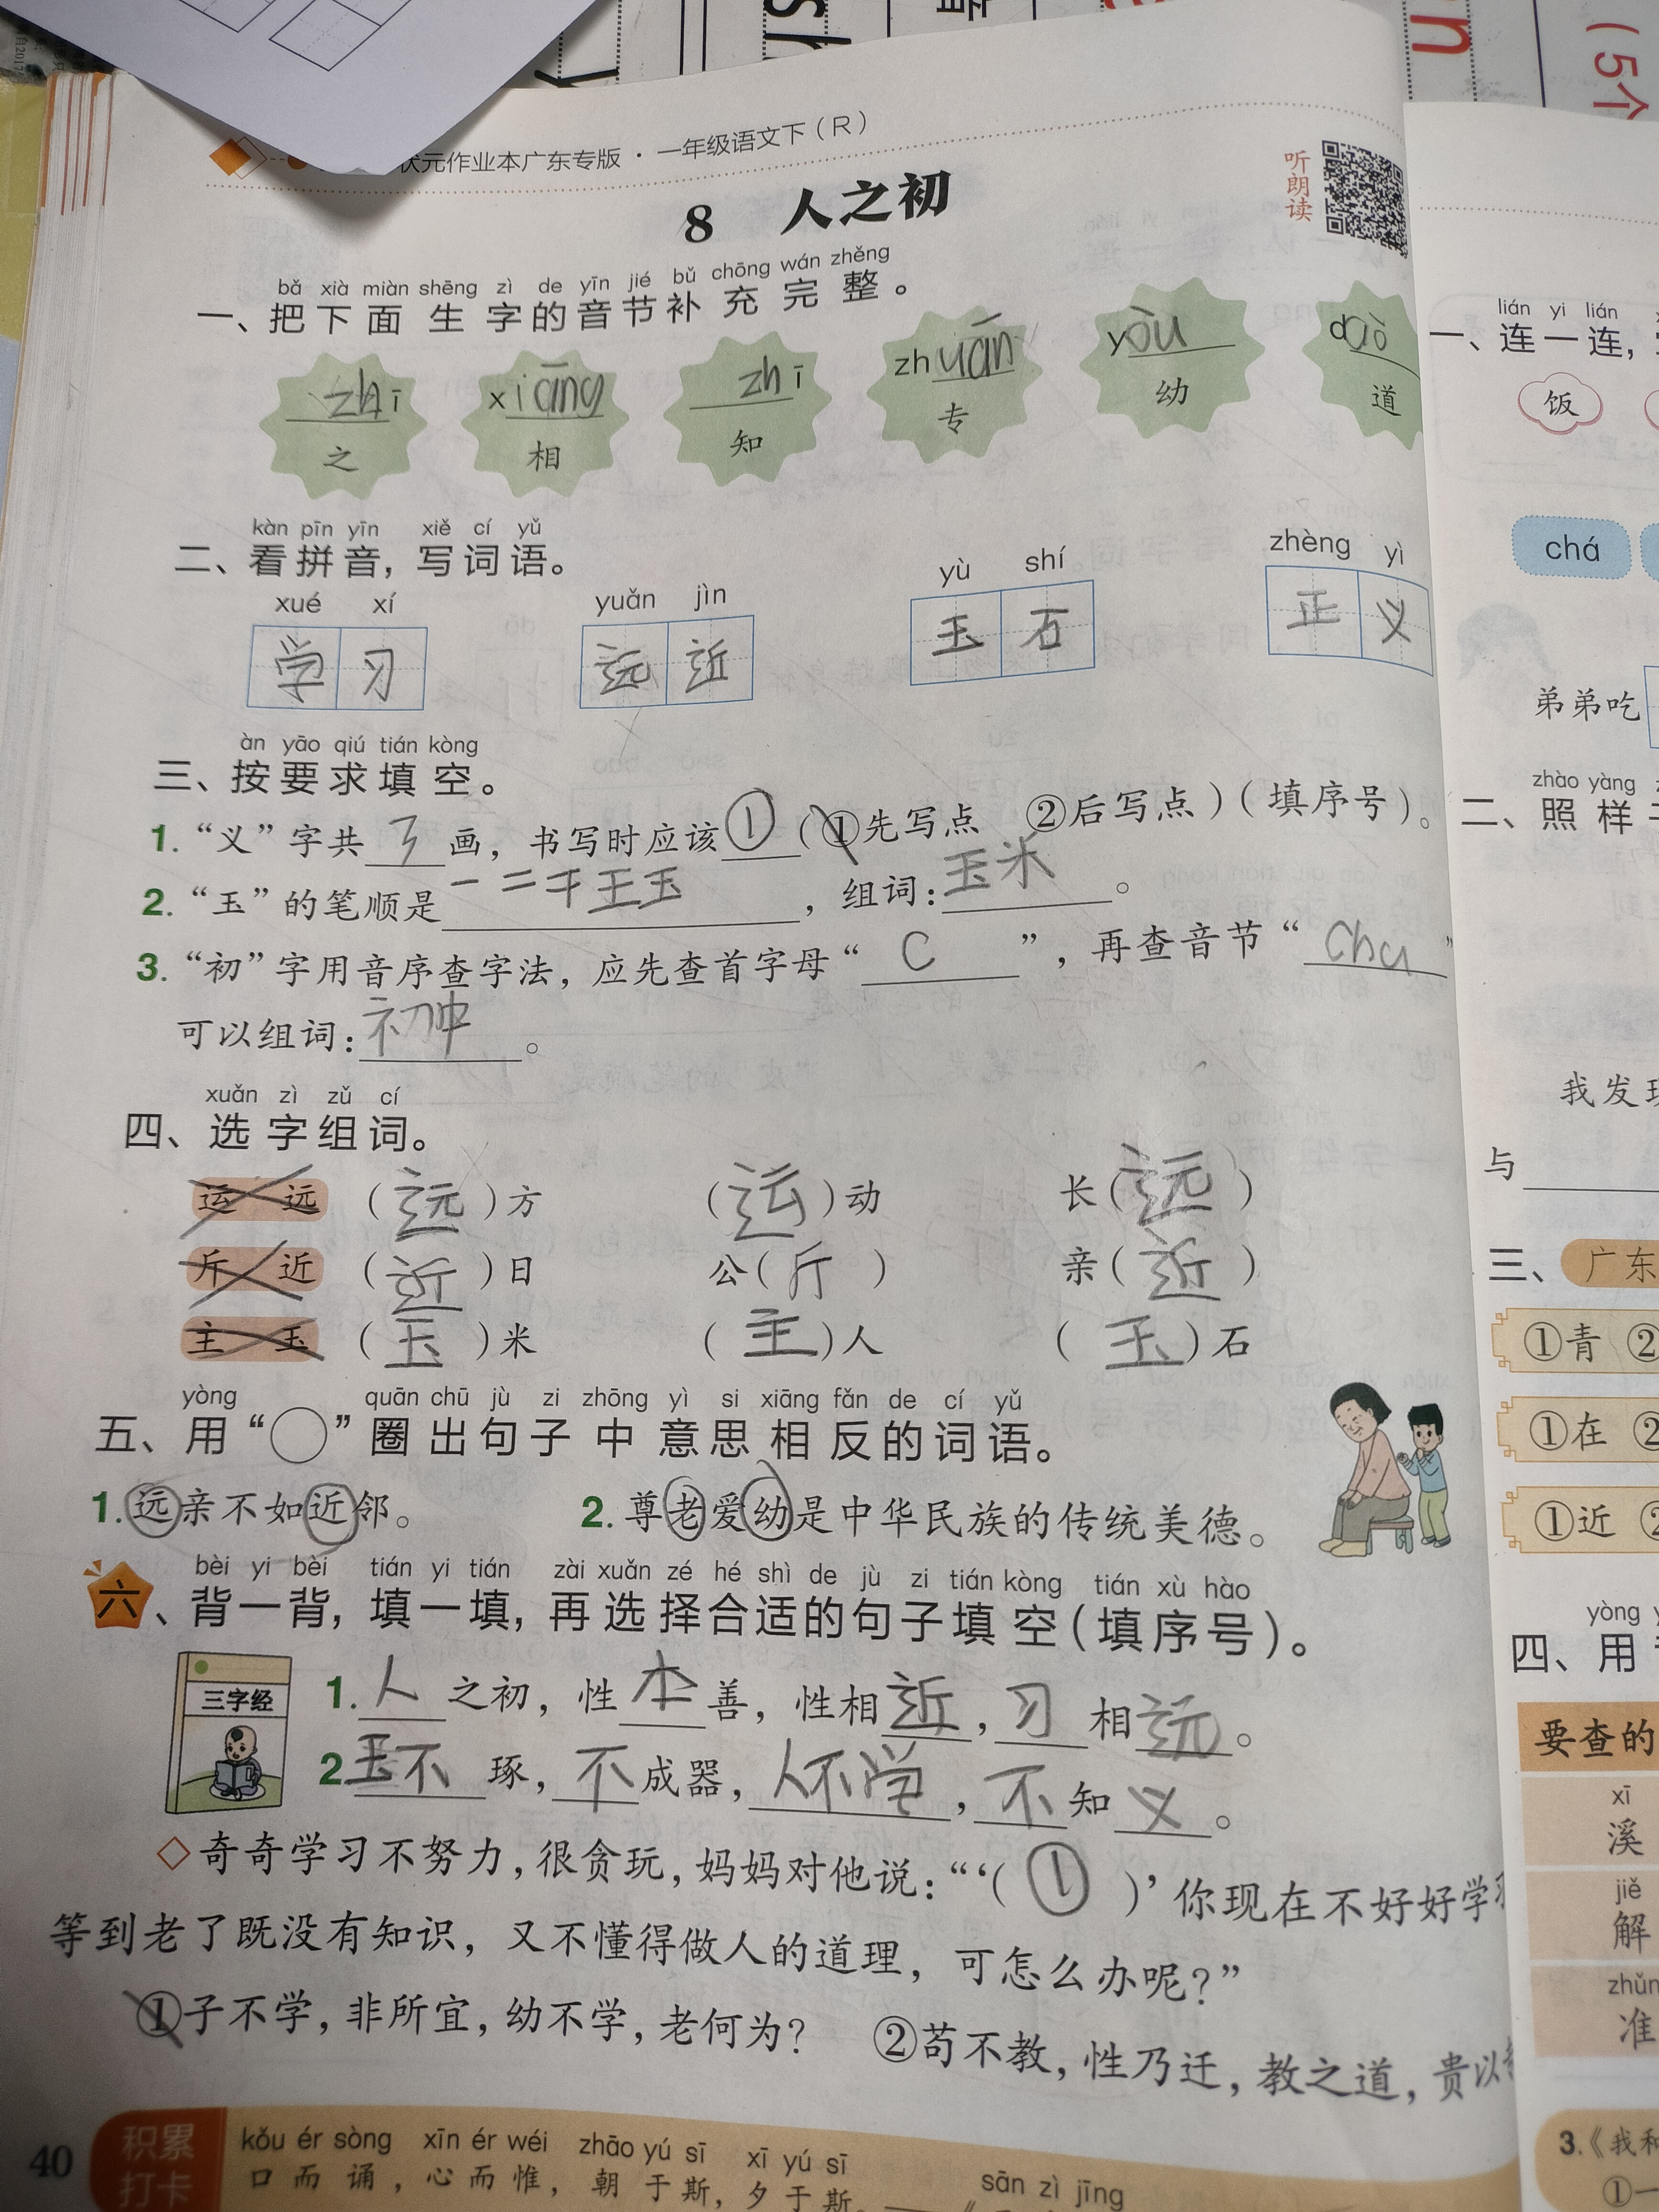 (5个
状元作业本广东专版·一年级语文下(R)
听朗读
8 人之初
bǎ xià miàn shēng zì de yīn jié bǔ chōng wán zhěng
一、把下面生字的音节补充完整。
zhī xiāng zhī zhuān yòu dào
之 相 知 专 幼 道
kàn pīn yīn xiě cí yǔ
二、看拼音,写词语。
xué xí yuǎn jìn yù shí zhèng yì
学习 远近 玉石 正义
àn yāo qiú tián kòng
三、按要求填空。
1. “义”字共3画,书写时应该①(①先写点 ②后写点)(填序号)。
2. “玉”的笔顺是一二干王玉,组词:玉米。
3. “初”字用音序查字法,应先查首字母“C”,再查音节“chu”
可以组词:初中。
xuǎn zì zǔ cí
四、选字组词。
运 远 (远)方 (运)动 长(远)
斤 近 (近)日 公(斤) 亲(近)
主 玉 (玉)米 (主)人 (玉)石
yòng quān chū jù zi zhōng yì si xiāng fǎn de cí yǔ
五、用“○”圈出句子中意思相反的词语。
1. 远亲不如近邻。 2. 尊老爱幼是中华民族的传统美德。
bèi yi bèi tián yi tián zài xuǎn zé hé shì de jù zi tián kòng tián xù hào
六、背一背,填一填,再选择合适的句子填空(填序号)。
三字经
1. 人之初,性本善,性相近,习相远。
2. 玉不琢,不成器,人不学,不知义。
◇奇奇学习不努力,很贪玩,妈妈对他说:“‘(①)’你现在不好好学
等到老了既没有知识,又不懂得做人的道理,可怎么办呢?”
①子不学,非所宜,幼不学,老何为? ②苟不教,性乃迁,教之道,贵以
40
积累打卡
kǒu ér sòng xīn ér wéi zhāo yú sī xī yú sī
口而诵,心而惟,朝于斯,夕于斯。
sān zì jīng
lián yi lián
一、连一连,
饭
chá
弟弟吃
zhào yàng
二、照样
我发现
与
三、广东
①青 ②
①在 ②
①近 ②
yòng
四、用
要查的
xī
溪
jiě
解
zhǔn
准
3.《我和
①一